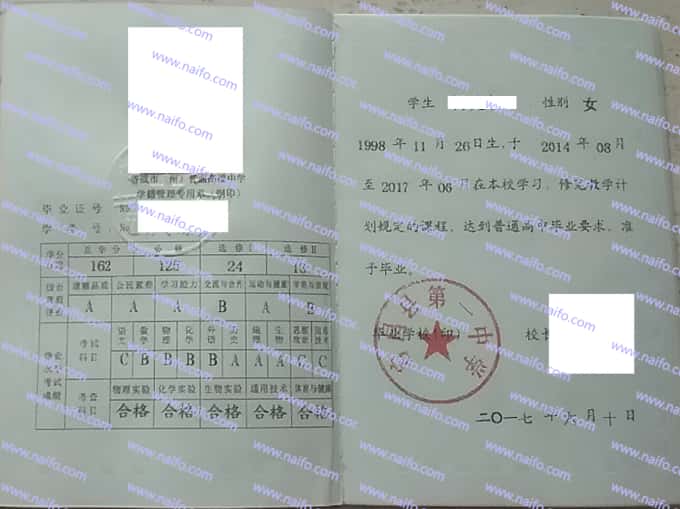 学籍管理专用章(钢印)
毕业证号 No
学 号 No
总学分 必修 选修Ⅰ 选修Ⅱ
162 125 24
道德品质 公民素养 学习能力 交流与合作 运动与健康 审美与表现
A A A B A B
考试
科目
语文 数学 物理 化学 外语 历史 地理 生物
C B B B B A A A C C
物理实验 化学实验 生物实验 通用技术 体育与健康
考查
科目
合格 合格 合格 合格 合格
学生 性别 女
1998 年 11 月 26日生,于 2014 年 08月
至 2017 年 06 月在本校学习,修完教学计
划规定的课程,达到普通高中毕业要求,准
予毕业。
第一中学
毕业学校(印) 校长
二〇一七 年 六 月 十 日
www.naifo.com